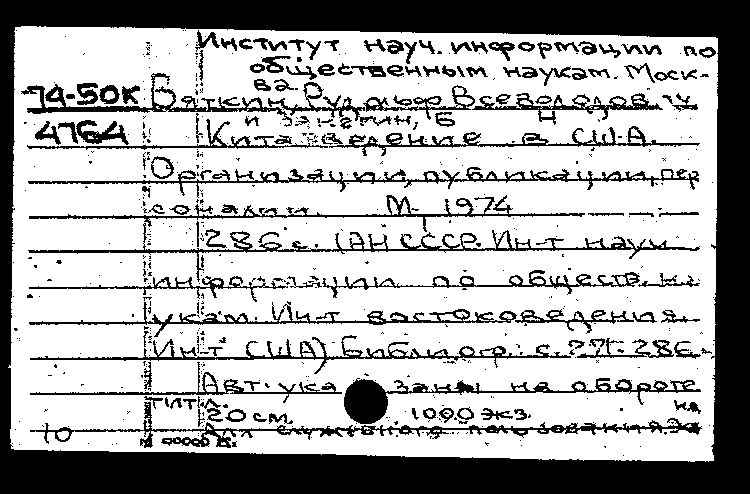 Институт науч. информации по
общественным наукам. Моск-
ва.
74-50К Вяткин, Рудольф Всеволодович
и Занегин, Б Н
4764 Китаеведение в США.
Организации, публикации, пер
соналии. М. 1974
286 с. (АН СССР. Ин-т науч.
информации по обществ. на
укам. Ин-т востоковедения.
Ин-т США) Библиогр.: с. 286.
Авт. указаны на обороте
тит. л.
20 см. 1000 экз. на
10 Для служебного пользования.